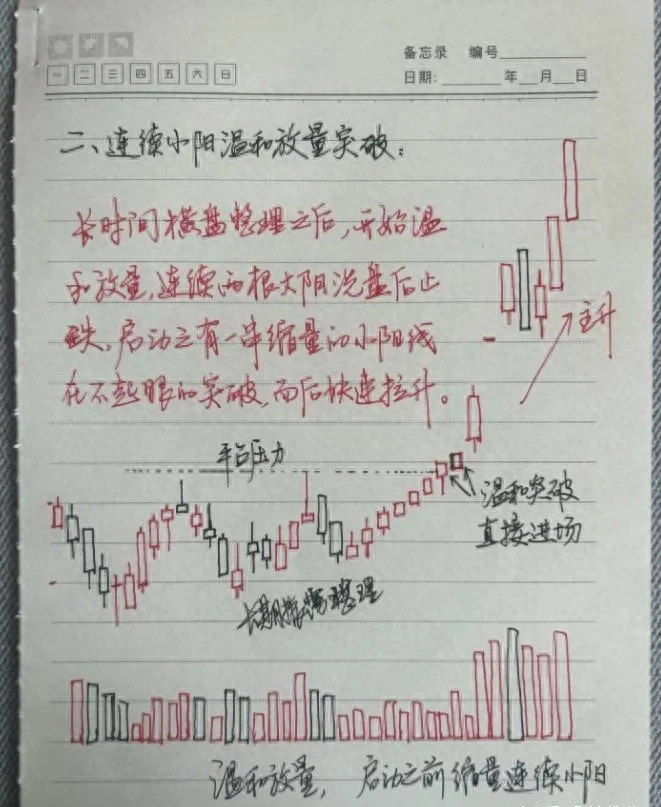 备忘录 编号
一 二 三 四 五 六 日
日期: 年 月 日
二、连续小阳温和放量突破：
长时间横盘整理之后，开始温
和放量，连续两根大阴洗盘后止
跌，启动之有一串缩量的小阳线
在不起眼的突破，而后快速拉升。
主升
平台压力
温和突破
直接进场
长期横盘整理
温和放量，启动之前缩量连续小阳